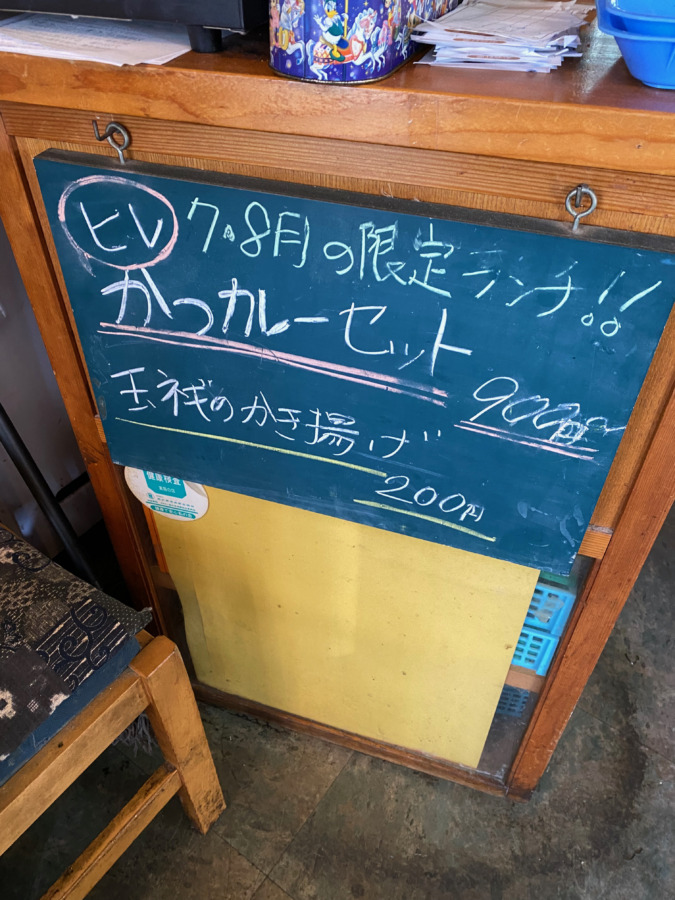 ヒレ 7・8月の限定ランチ!!
かつカレーセット
900円
玉ネギのかき揚げ
200円
健康検査